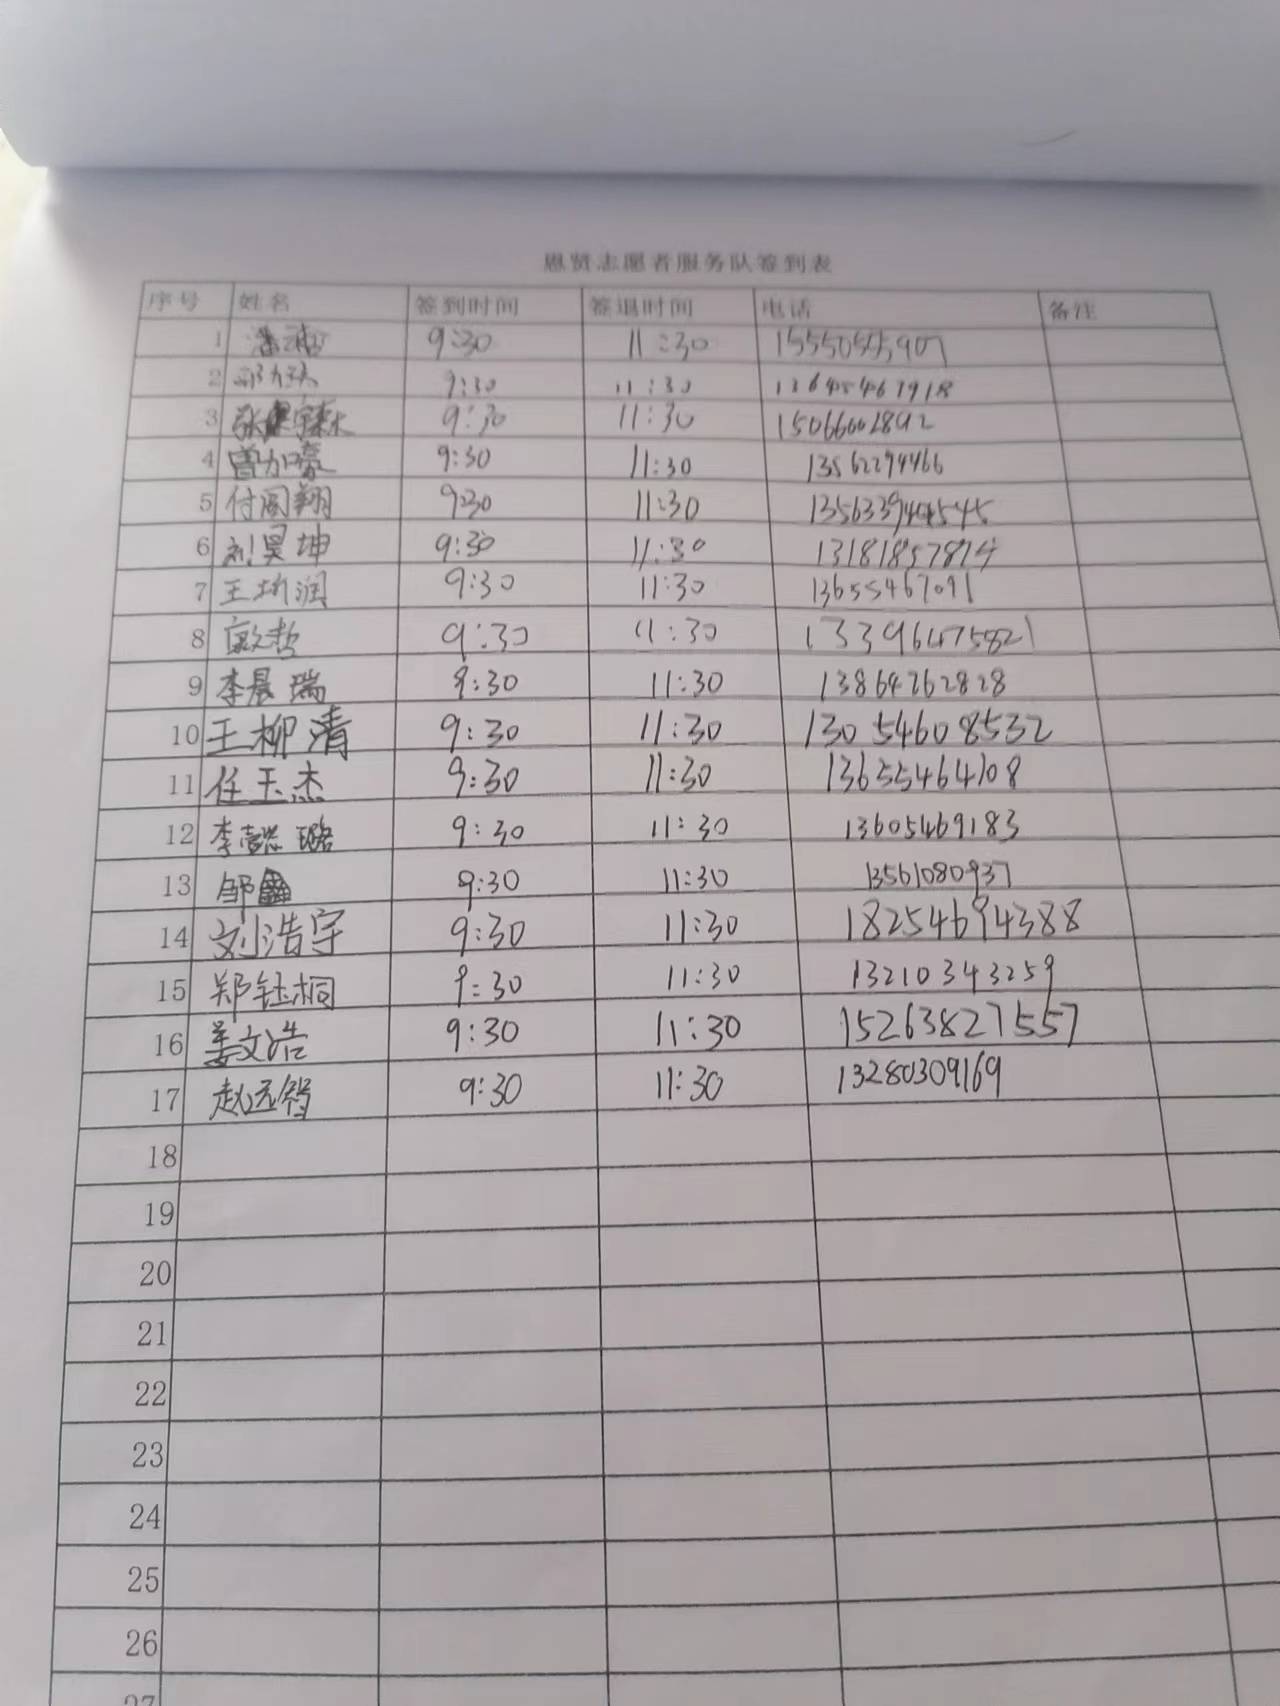 恩贤志愿者服务队签到表
序号 姓名 签到时间 签退时间 电话 备注
1 9:30 11:30
2 9:30 11:30
3 9:30 11:30 15066002892
4 曾加豪 9:30 11:30 13562294466
5 付阁翔 9:30 11:30
6 刘昊坤 9:30 11:30 13181857874
7 9:30 11:30 13655467091
8 9:30 11:30 13396475821
9 李晨瑞 9:30 11:30 13864762828
10 王柳清 9:30 11:30 13054608532
11 任玉杰 9:30 11:30 13655464108
12 李懿璐 9:30 11:30 13605469183
13 邹鑫 9:30 11:30 13561080937
14 刘浩宇 9:30 11:30 18254694388
15 郑钰桐 9:30 11:30 13210343259
16 姜文浩 9:30 11:30 15263827557
17 赵远智 9:30 11:30 13280309169
18
19
20
21
22
23
24
25
26
27